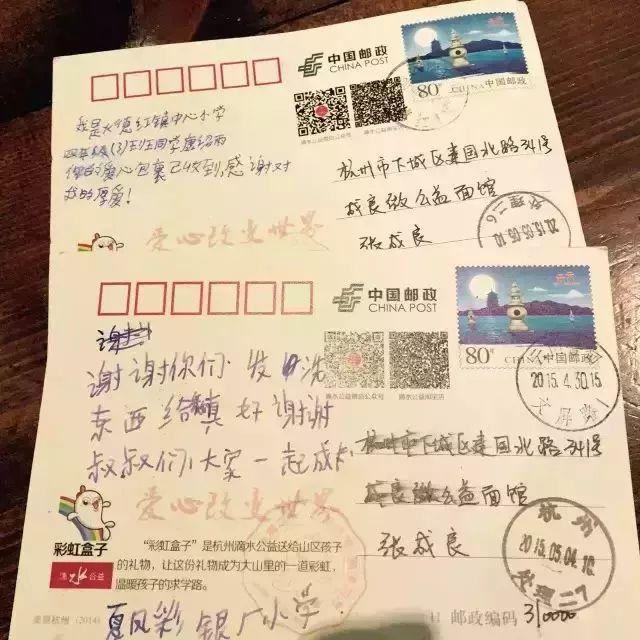 中国邮政
CHINA POST
80分
CHINA 中国邮政
我是大
红镇中心小学
四年级(3)班
同学唐绍雨
你的爱心包裹已收到,感谢对
我的厚爱!
滴水公益微信公众号
杭州市下城区建国北路341号
成良微公益面馆
张成良
2015.05.10
爱心改变世界
中国邮政
CHINA POST
80分
CHINA 中国邮政
谢谢你们发
东西给
真好谢谢
叔叔们大家一起成
滴水公益微信公众号
滴水公益淘宝店
2015.4.30.15
杭州市下城区建国北路341号
成良微公益面馆
张成良
爱心改变世界
彩虹盒子
滴水公益
“彩虹盒子”是杭州滴水公益送给山区孩子
的礼物,让这份礼物成为大山里的一道彩虹,
温暖孩子的求学路。
杭州
2015.05.04.16
(2014)
银厂小学
邮政编码
310000